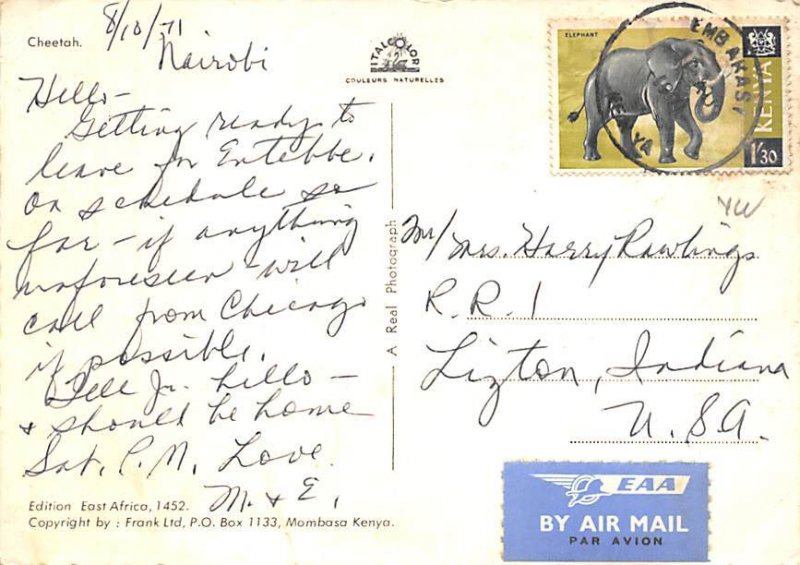 Cheetah.
8/10/71
Nairobi
ITALCOLOR
COULEURS NATURELLES
Hello-
Getting ready to
leave for Entebbe.
On schedule so
far - if anything
unforeseen - will
call from Chicago
if possible.
Tell Jr. hello -
& should be home
Sat. P.M. Love
M. & E.
Edition East Africa, 1452.
Copyright by : Frank Ltd, P.O. Box 1133, Mombasa Kenya.
A Real Photograph
ELEPHANT
KENYA
1/30
EMBAKASI
KENYA
YW
Mr/Mrs. Harry Rawlings
R.R. 1
Lizton, Indiana
U.S.A.
EAA
BY AIR MAIL
PAR AVION